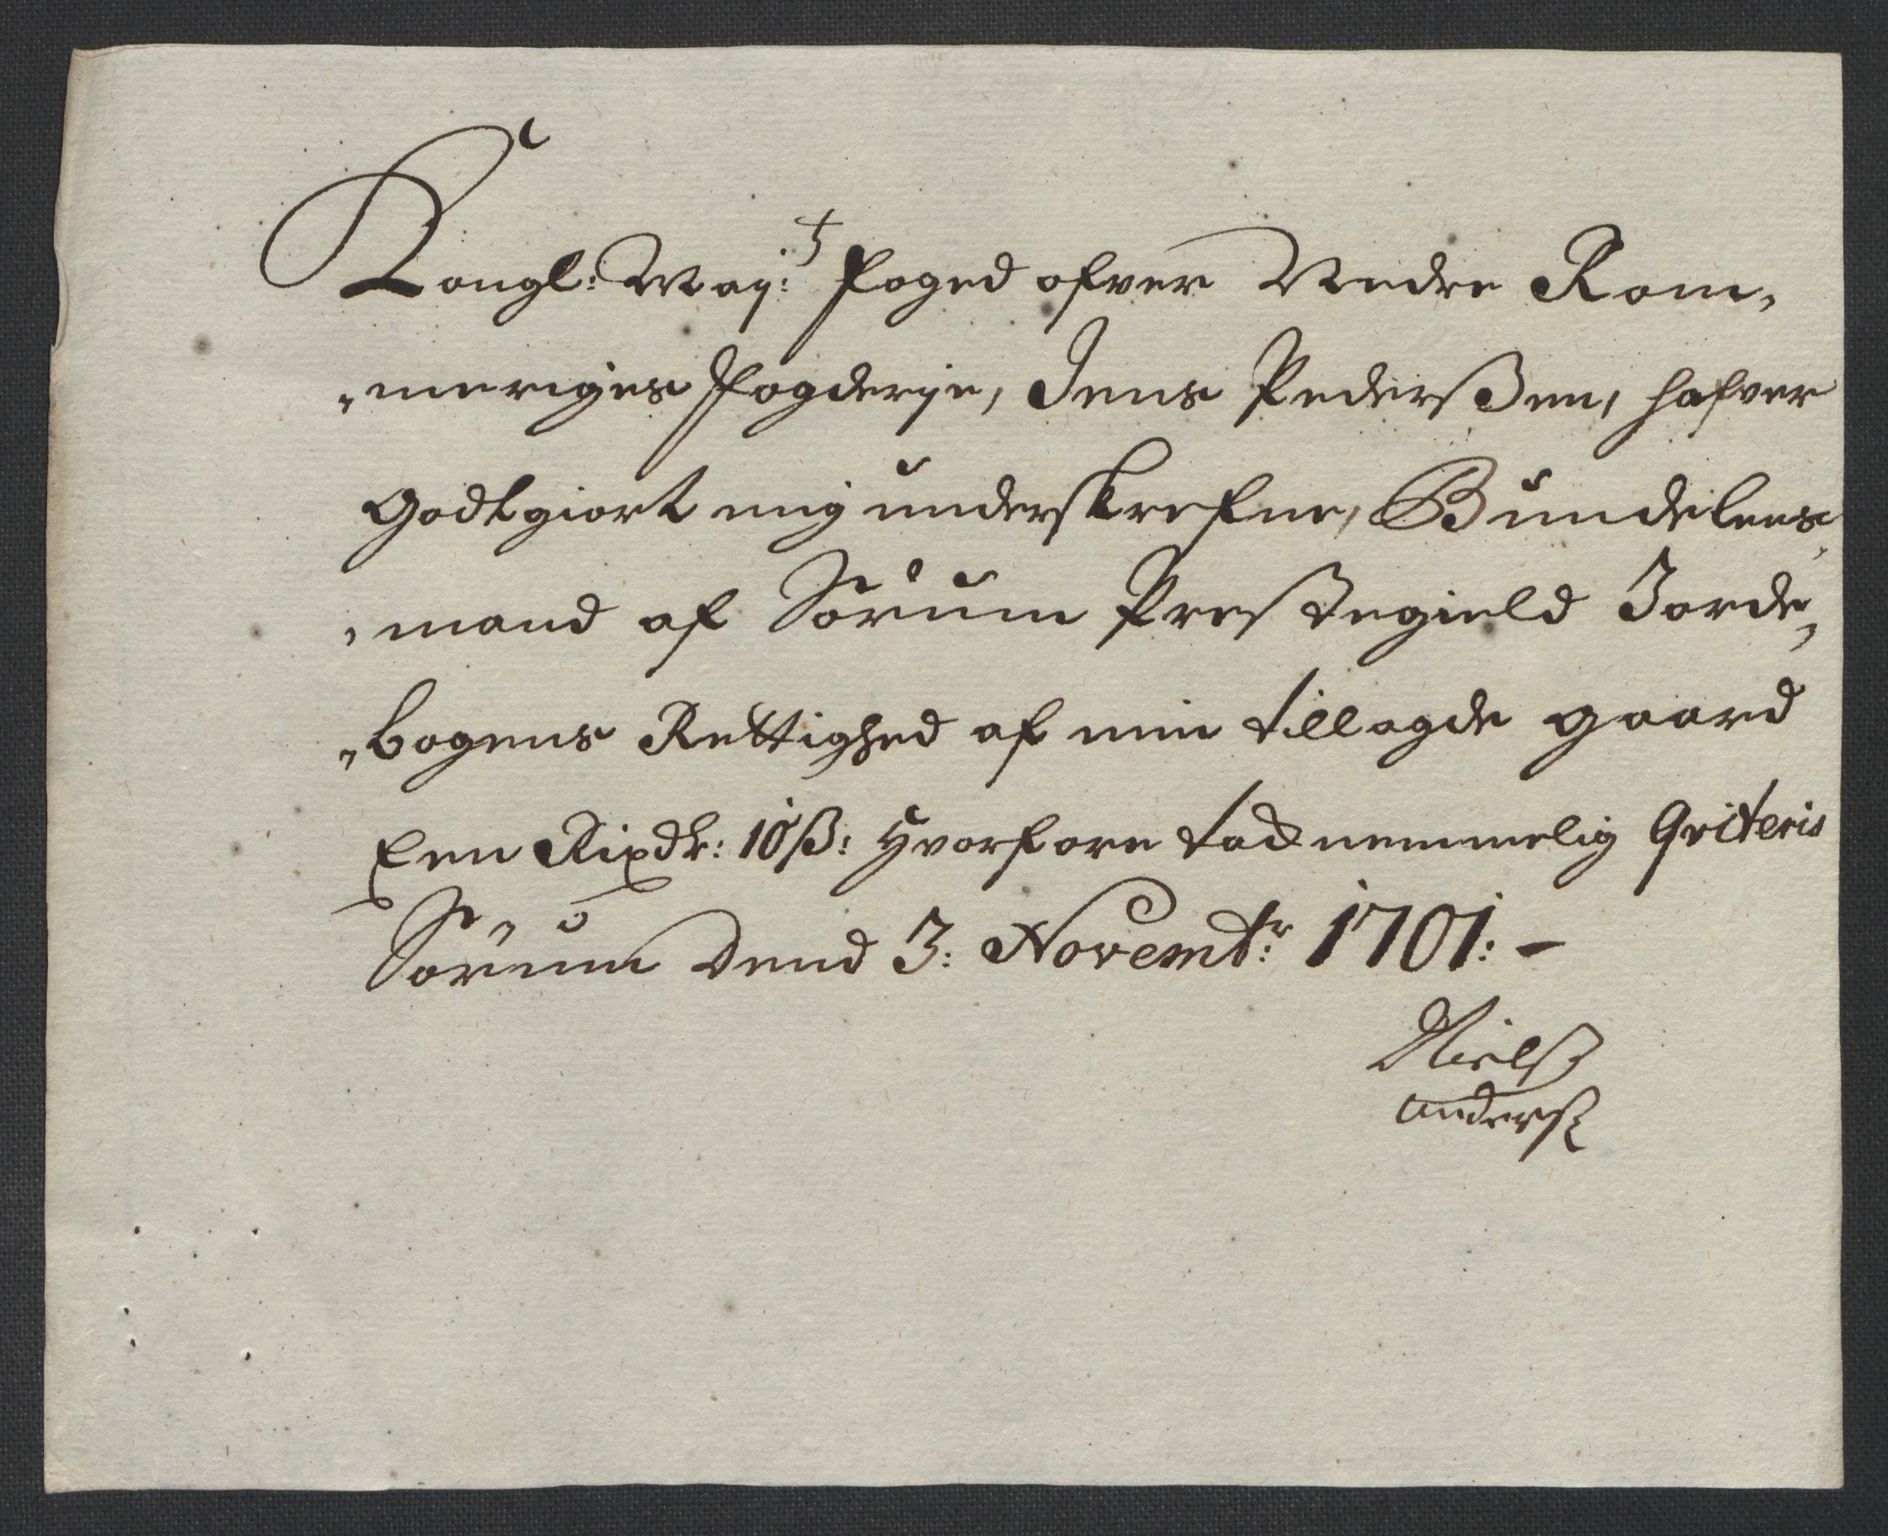 Kongl: Maj:ts Foged ofver Nedre Rom„
„meriges Fogderje, Jens Pederßen, hafver
godtgiort mig underskrefne, Bundelens„
„mand af Sørum Præstegield Jorde„
„bogens Rettighed af min tillagde gaard
Een Rixdr: 10 ß: Hvorfore tacknemmelig Qviteris
Sørum dend 3: Novembr: 1701: –
Nielß
Anderß